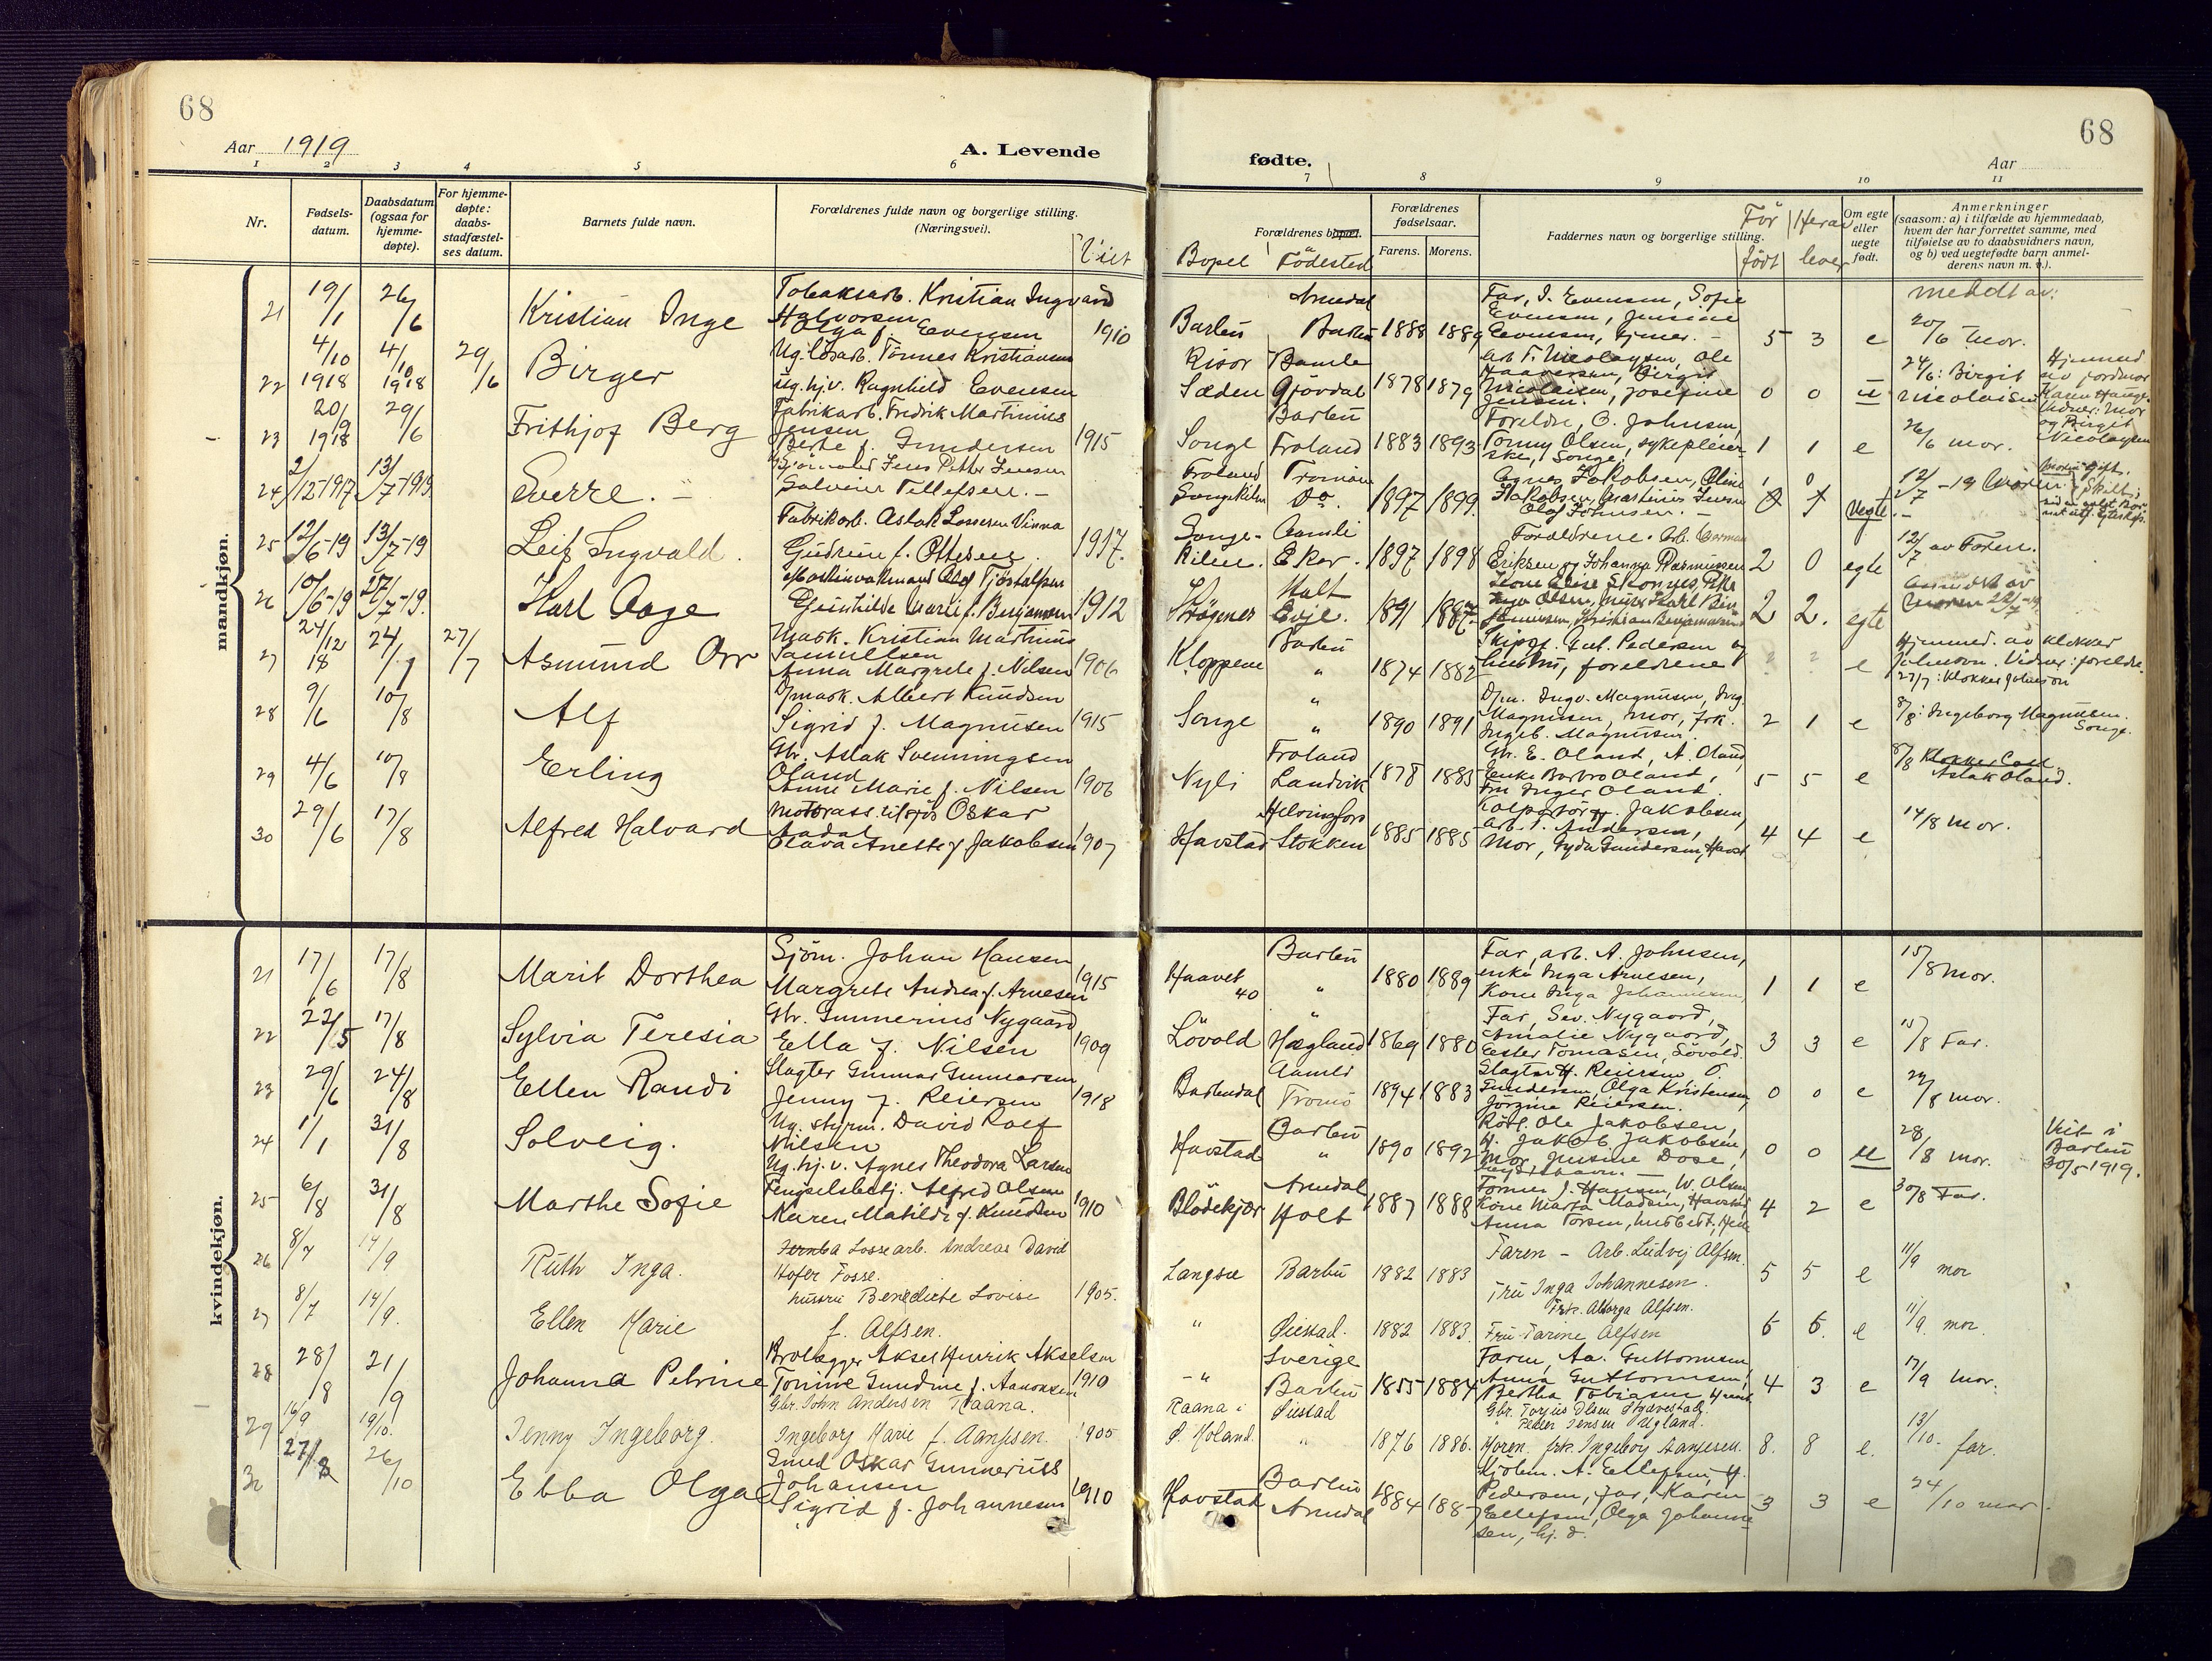 68
Aar 1919
A. Levende
1 2 3 4 5 6
Nr.
Fødsels-
datum.
Daabsdatum
(ogsaa for
hjemme-
døpte).
For hjemme-
døpte:
daabs-
stadfæstel-
ses datum.
Barnets fulde navn.
Forældrenes fulde navn og borgerlige stilling.
(Næringsvei).
Viet
mandkjøn.
21 19/1 26/6 Kristian Inge
Tobaksarb. Kristian Ingvard
Halvorsen
Olga f. Evensen 1910
22 4/10 1918 4/10 1918 29/6 Birger
Ug. losarb. Tönnes Kristiansen
ug. hj.v. Ragnhild Evensen
23 20/9 1918 29/6 Frithjof Berg
Fabrikarb. Fredrik Martinius
Jensen
Berthe f. Gundersen 1915
24 2/12-1917 13/7-1919 Sverre.
Jens Petter Jensen
Solveier Tellefsen.
25 12/6-19 13/7-19 Leif Ingvald.
Fabrikarb. Aslak Lassesen Vinna
Gudrun f. Ottesen. 1917.
26 10/6-19 27/7-19. Karl Aage
Gunhilde Marie f. Benjaminsen 1912
27 24/12 18 24/1 27/7 Asmund Orr
Mask. Kristian Martinius
Samuelsen
Anna Margrete f. Nilsen 1906
28 9/6 10/8 Alf
Albert Knudsen
Sigrid f. Magnusen 1915
29 4/6 10/8 Erling
Gbr. Aslak Svenningsen
Oland
Anne Marie f. Nilsen 1906
30 29/6 17/8 Alfred Halvard
Oskar
Aadal
Olava Anette f. Jakobsen 1907
kvindekjøn.
21 17/6 17/8 Marit Dorthea
Sjöm. Johan Hansen
Margrete Andrea f. Arnesen 1915
22 22/5 17/8 Sylvia Teresia
Gbr. Gunnerius Nygaard
Ella f. Nilsen 1909
23 29/6 24/8 Ellen Randi
Slagter Gunnar Gunnarsen
Jenny f. Reiersen 1918
24 1/1 31/8 Solveig.
Ug. styrm. David Rolf
Nilsen
Ug. hj.v. Agnes Theodora Larsen
25 6/8 31/8 Marthe Sofie
Fengselsbetj. Alfred Olsen
Karen Matilde f. Knudsen 1910
26 8/7 14/9 Ruth Inga.
Lossearb. Andreas David
Hofer Fosse.
hustru Benedicte Lovise 1905.
27 8/7 14/9. Ellen Marie
f. Alfsen.
28 28/8 21/9 Johanna Petrine
Brolægger Aksel Henrik Akselsen
Tomine Gundine f. Aanonsen 1910
29 16/9 19/10. Jenny Ingeborg.
Gbr. John Andersen Raana.
Ingeborg Marie f. Aanjesen. 1905
30 27/8 26/10 Ebba Olga
Smed Oskar Gunnerius
Johansen
Sigrid f. Johannesen 1910
68
fødte.
Aar
7 8 9 10 11
Forældrenes bopæl.
Bopel Födested
Forældrenes
fødselsaar.
Farens. Morens.
Faddernes navn og borgerlige stilling.
För födt Herav lever
Om egte
eller
uegte
født.
Anmerkninger
(saasom: a) i tilfælde av hjemmedaab,
hvem der har forrettet samme, med
tilføielse av to daabsvidners navn,
og b) ved uegtefødte barn anmel-
derens navn m. v.).
meddt av:
Barbu Arendal Barbu 1888 1889
Far, J. Evensen, Sofie
Evensen, Jensine
Evensen, 5 3 e 20/6 mor.
Risör Bamle
Sæden Gjövdal 1878 1879
Arb. T. Nicolaysen, Ole
Haaversen, Birgit
Nicolaisen, Josefine
Jensen. 0 0 u 24/6: Birgit
Nicolaisen
Hjemmed
av jordmor
Karen Hauge.
Vidner: mor
og Birgit
Nicolaysen
Songe Barbu Froland 1883 1893
Foreldre, O. Johnsen,
Tomny Olsen, sykepleier-
ske, Songe, 1 1 e 26/6 mor.
Froland Tromøn
Songekilen Do. 1897 1899.
Agnes Jakobsen, Oline
Jakobsen, Martinus Jensen
Olaf Johnsen. 1 0 uegte 12/7-19 Moren
Songe- Aamli
kilen. Eker. 1897 1898
Foreldrene. Arb. Herman
Eriksen og Johanna Rasmussen 2 0 egte 12/7 av Faren.
Holt
Evje. 1891 1887
2 2. egte
Anmeldt av
Moren 22/7-19.
Kloppene Barbu " 1874 1882
Skipsf. Gut. Pedersen og
hustru, foreldrene e
Hjemmed. av klokker
Johnson. Vidner: foreldre.
27/7: Klokker Johnson
Songe " " 1890 1891
Ingv. Magnusen, Ing.
Magnusen, mor, frk.
Ingeb. Magnusen. 2 1 e 8/8: Ingeborg Magnusen.
Songe.
Nyli Froland Landvik 1878 1885
Gbr. E. Oland, A. Oland,
Enke Barbro Oland,
Fru Inger Oland. 5 5 e 8/8
Aslak Oland.
Havstad Helsingfors Stokken 1885 1885
Kolportör T. Jakobsen,
Arb. T. Andersen,
Mor, Gyda Gundersen, Havst. 4 4 e 14/8 mor.
Haavet 40 Barbu " 1880 1889
Far, arb. A. Johnsen,
enke Inga Arnesen,
Kone Inga Johannesen, 1 1 e 15/8 mor.
Lövold " Hægland 1869 1880
Far, Sev. Nygaard,
Amalie Nygaard,
Ester Tomasen, Lövold. 3 3 e 15/8 Far.
Barbudal Aamli Tromö 1894 1883
Slagter H. Reiersen O.
Gundersen, Olga Kristensen,
Jörgine Reiersen. 0 0 e 22/8 mor.
Havstad Barbu " 1890 1892
Rörl. Ole Jakobsen,
H. Jakob Jakobsen,
Mor, Jensine Dose,
0 0 u 28/8 mor.
Viet i
Barbu
30/5 1919.
Blödekjær Arendal Holt 1887 1888
Former J. Hansen, W. Olsen
Kone Marta Madsen, Havstad,
Anna Torsen, husbest., 4 2 e 30/8 Far.
Langsæ Barbu 1882 1883
Faren - Arb. Ludvig Alfsen.
Fru Inga Johannesen. 5 5 e 11/9 mor
" Øiestad. 1882 1883.
Frk. Alborga Alfsen.
Fru Tarine Alfsen 6 6. e 11/9. mor.
-"- Sverige Barbu 1855 1884
Faren, Aa. Guttormsen,
Anna Guttormsen,
Bertha Tobiasen, 4 3 e 17/9 mor.
Raana i Øiestad
Ø. Moland. " 1876 1886.
Gbr. Torjus Olsen
Peder Jensen Ugland.
Moren. frk. Ingeborg Aanjesen. 8. 8 e. 13/10. far.
Havstad Barbu Arendal 1884 1887
A. Ellefsen, H.
Pedersen, far, Karen
Ellefsen, Olga Johanne-
sen, hj. d. 3 3 e 24/10 mor.